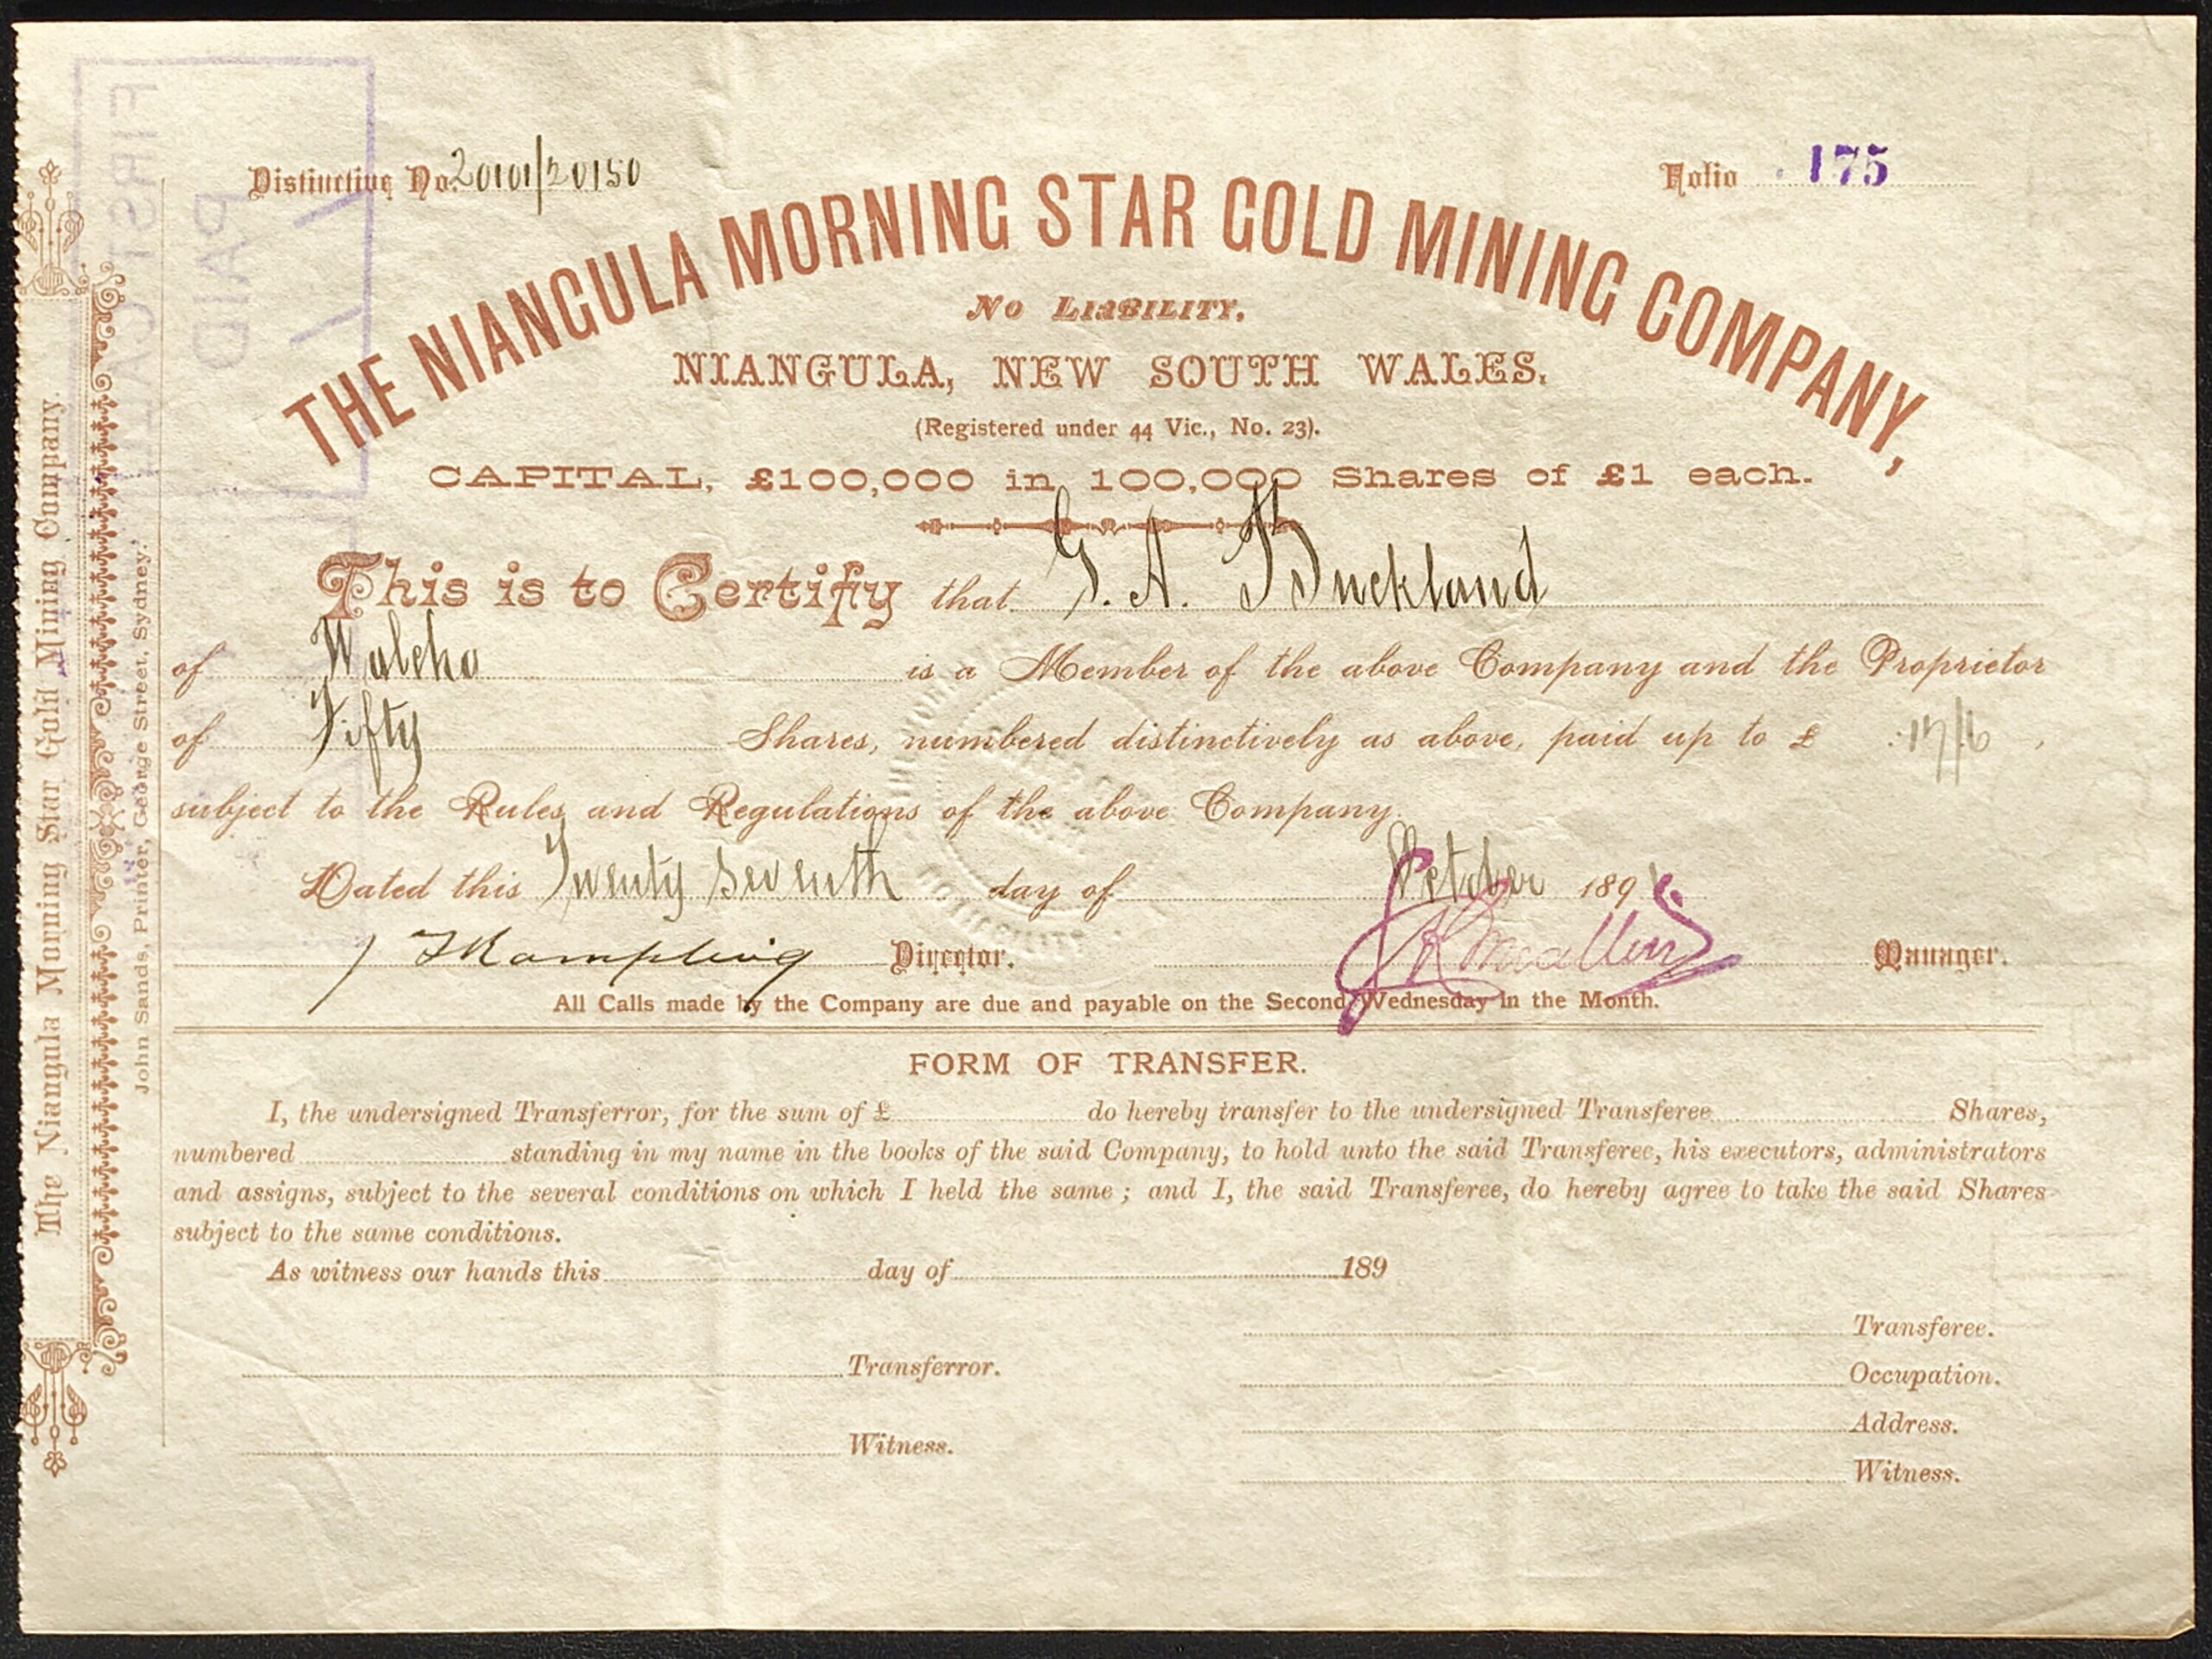 Distinctive No. 20101/20150
Folio 175
THE NIANGULA MORNING STAR GOLD MINING COMPANY,
No LIABILITY.
NIANGULA, NEW SOUTH WALES.
(Registered under 44 Vic., No. 23).
CAPITAL, £100,000 in 100,000 Shares of £1 each.
This is to Certify that G. A. Buckland
of Walcha is a Member of the above Company and the Proprietor
of Fifty Shares, numbered distinctively as above, paid up to £ :17/6 ,
subject to the Rules and Regulations of the above Company.
Dated this Twenty Seventh day of October 189
Director. Manager.
All Calls made by the Company are due and payable on the Second Wednesday in the Month.
FORM OF TRANSFER.
I, the undersigned Transferror, for the sum of £ do hereby transfer to the undersigned Transferee Shares,
numbered standing in my name in the books of the said Company, to hold unto the said Transferee, his executors, administrators
and assigns, subject to the several conditions on which I held the same ; and I, the said Transferee, do hereby agree to take the said Shares
subject to the same conditions.
As witness our hands this day of 189
Transferee.
Transferror.
Occupation.
Address.
Witness.
Witness.
The Niangula Morning Star Gold Mining Company.
John Sands, Printer, George Street, Sydney.
FIRST CALL
PAID